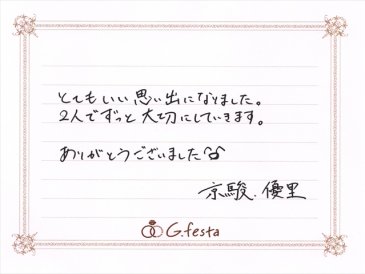 とてもいい思い出になりました。
2人でずっと大切にしていきます。
ありがとうございました
京駿. 優里
G.festa